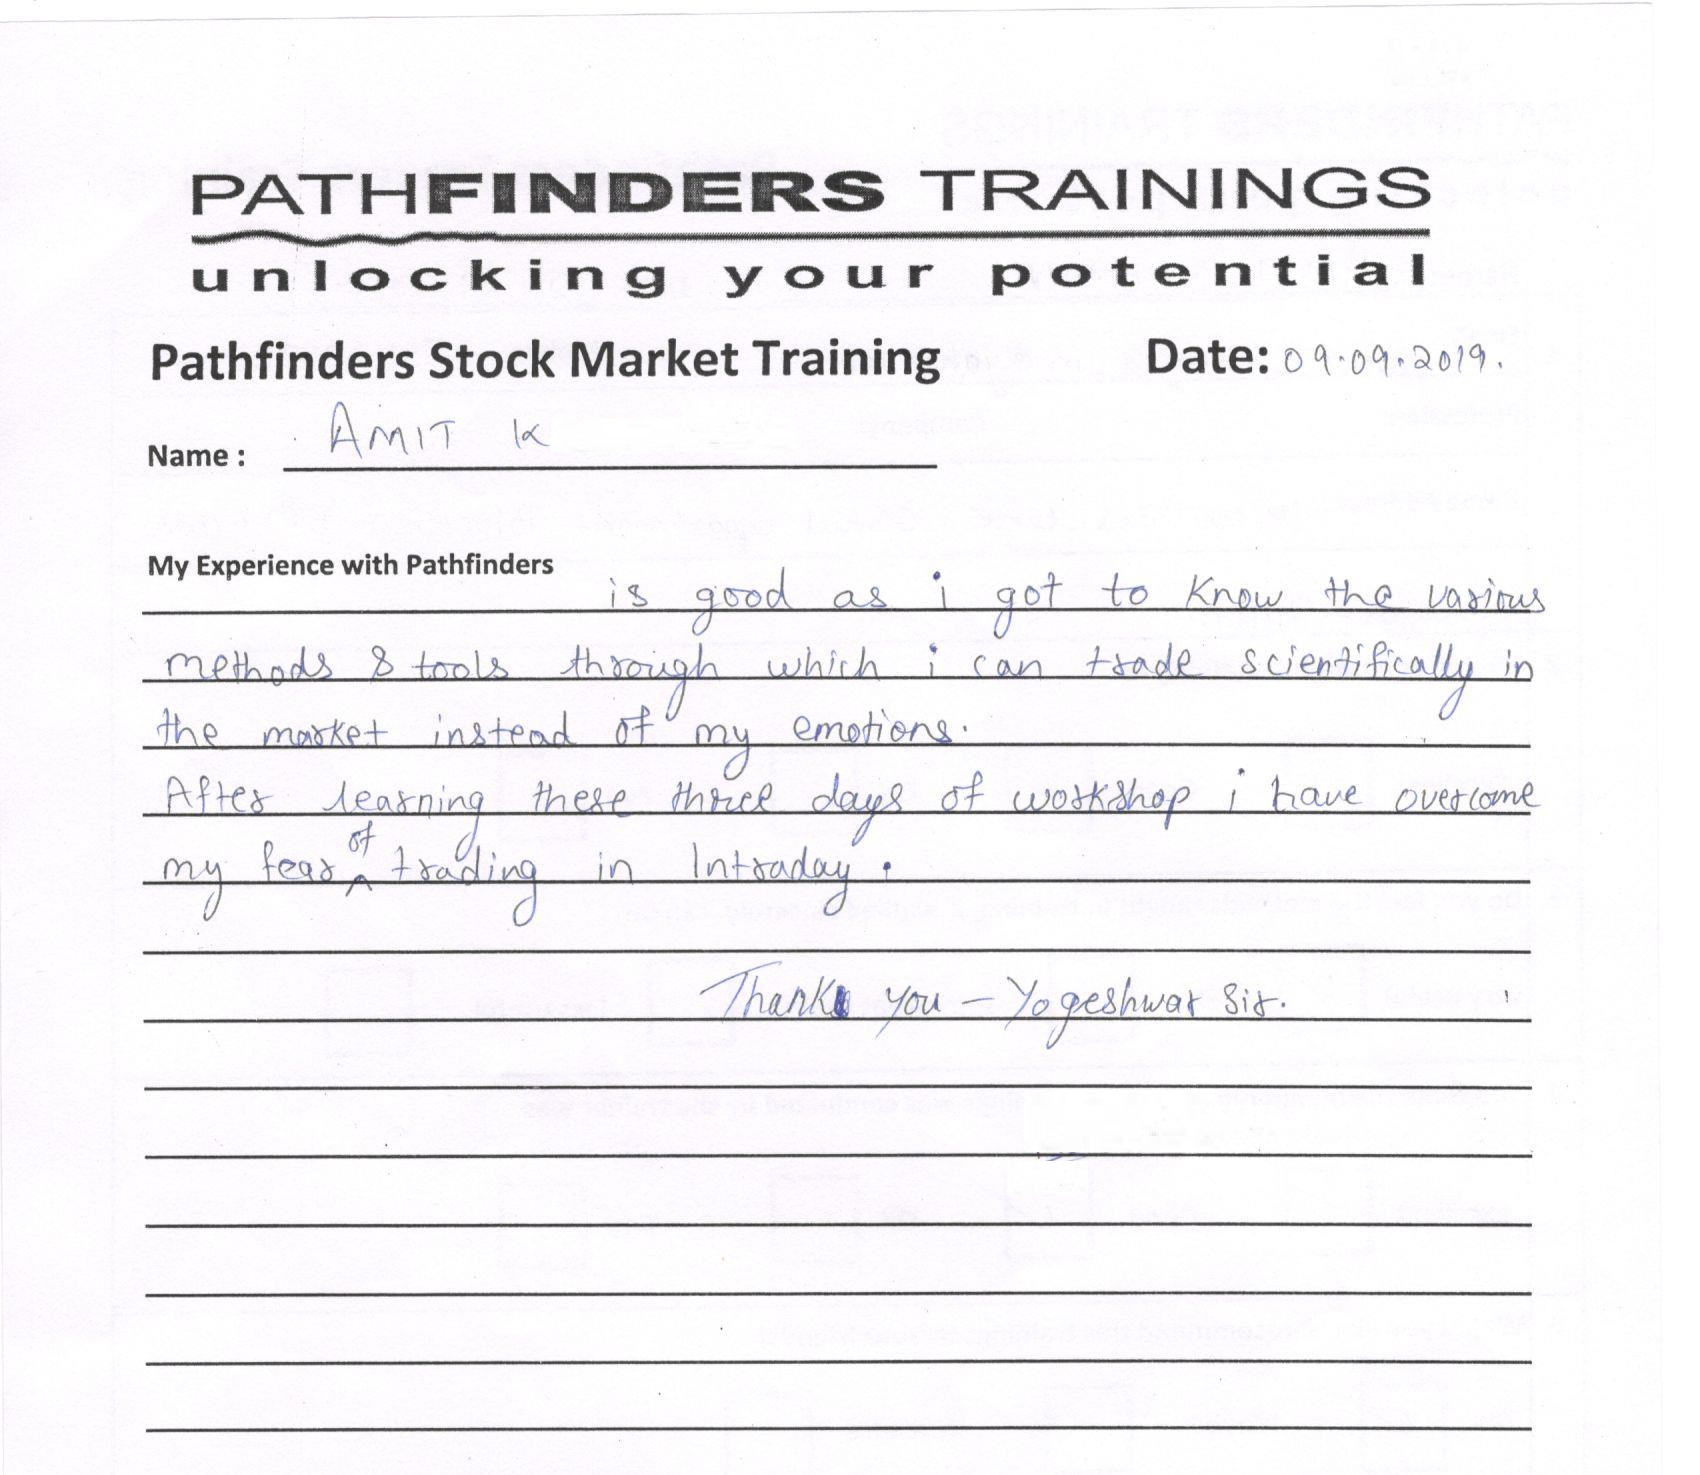 PATHFINDERS TRAININGS
unlocking your potential
Pathfinders Stock Market Training Date: 09.09.2019.
Name : AMIT K
My Experience with Pathfinders
is good as i got to know the various
methods & tools through which i can trade scientifically in
the market instead of my emotions.
After learning these three days of workshop i have overcome
my fear of trading in Intraday.
Thank you - Yogeshwar Sir.